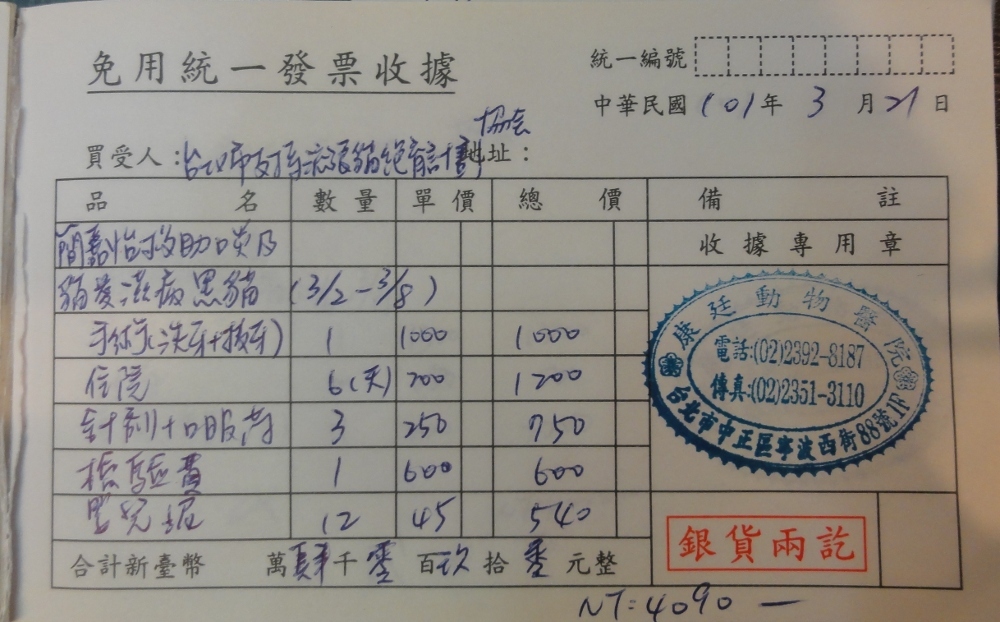 免用統一發票收據
統一編號
中華民國 101 年 3 月 21 日
協會
買受人：台北市支持流浪貓絕育計劃 地址：
品名 數量 單價 總價 備註
簡嘉怡救助口炎及
收據專用章
貓愛滋病黑貓 (3/2-3/8)
手術(洗牙+拔牙) 1 1000 1000
住院 6(天) 200 1200
針劑+口服藥 3 250 750
檢驗費 1 600 600
嬰兒泥 12 45 540
康廷動物醫院
電話:(02)2392-8187
傳真:(02)2351-3110
台北市中正區寧波西街88號1F
合計新臺幣 萬肆千零百玖拾零元整
銀貨兩訖
NT:4090 —